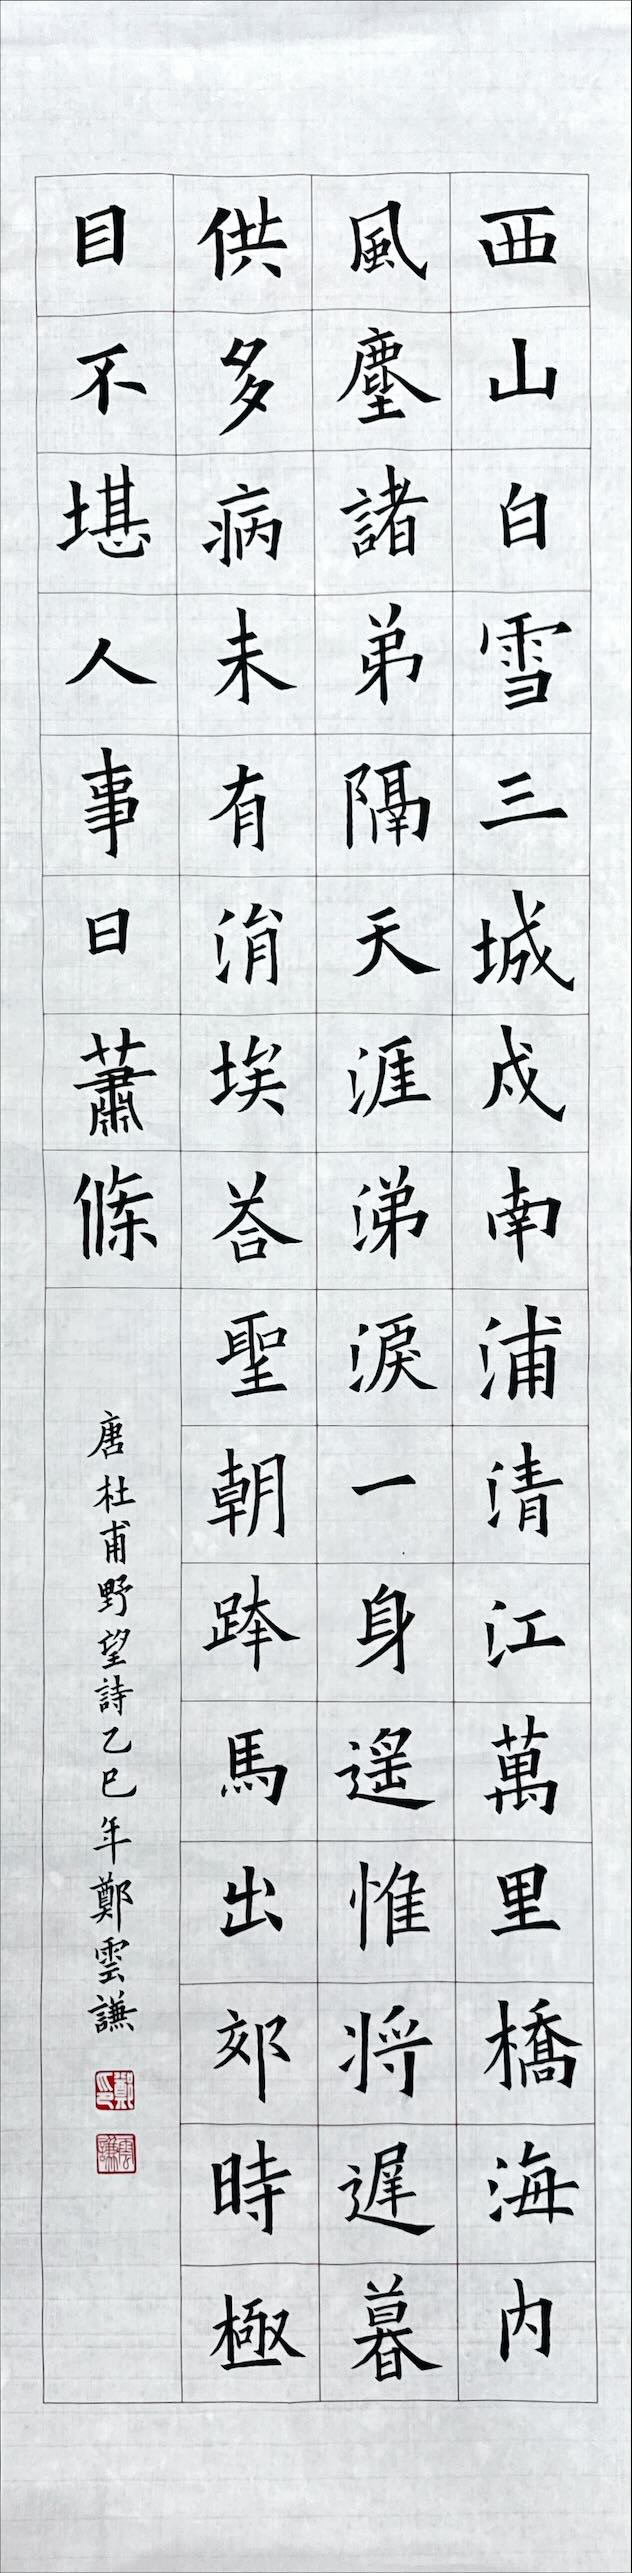 西山白雪三城戍南浦清江萬里橋海内
風塵諸弟隔天涯涕淚一身遥惟將遲暮
供多病未有涓埃荅聖朝跨馬出郊時極
目不堪人事日蕭條
唐杜甫野望詩乙巳年鄭雲謙
鄭印
雲謙